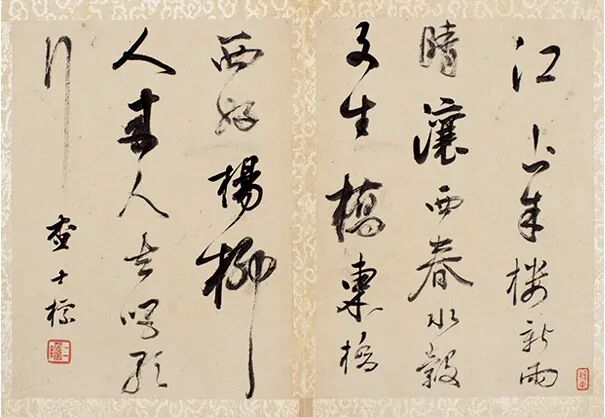 江上朱樓新雨
晴瀼西春水縠
文生橋東橋
西好楊柳
人來人去唱歌
行
查士標